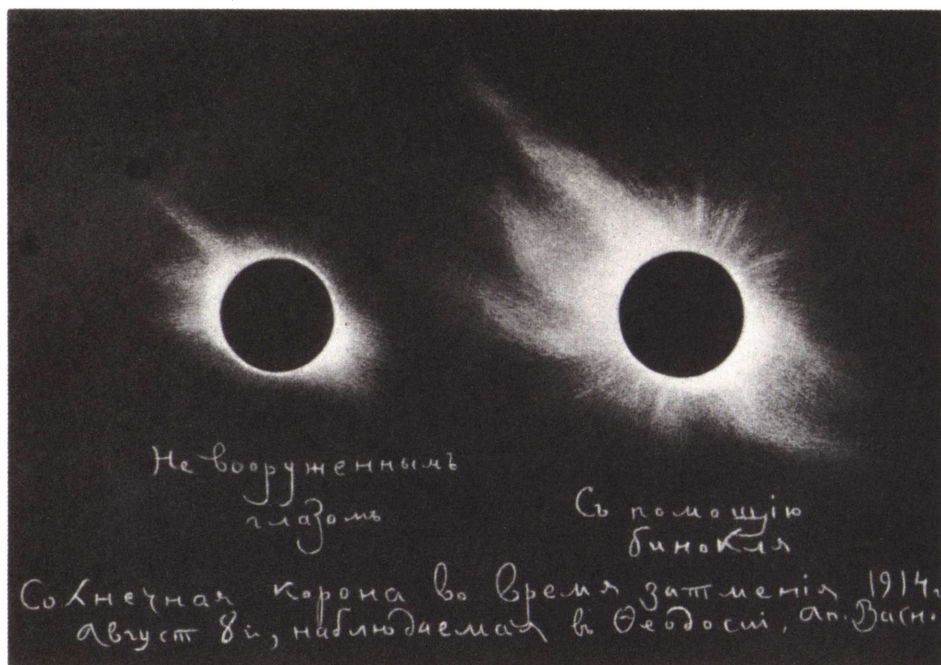 Не вооруженнымъ
глазомъ
Съ помощію
бинокля
Солнечная корона во время затменія 1914г.
Август 8го, наблюдаемая въ Ѳеодосіи. Ап. Васн.